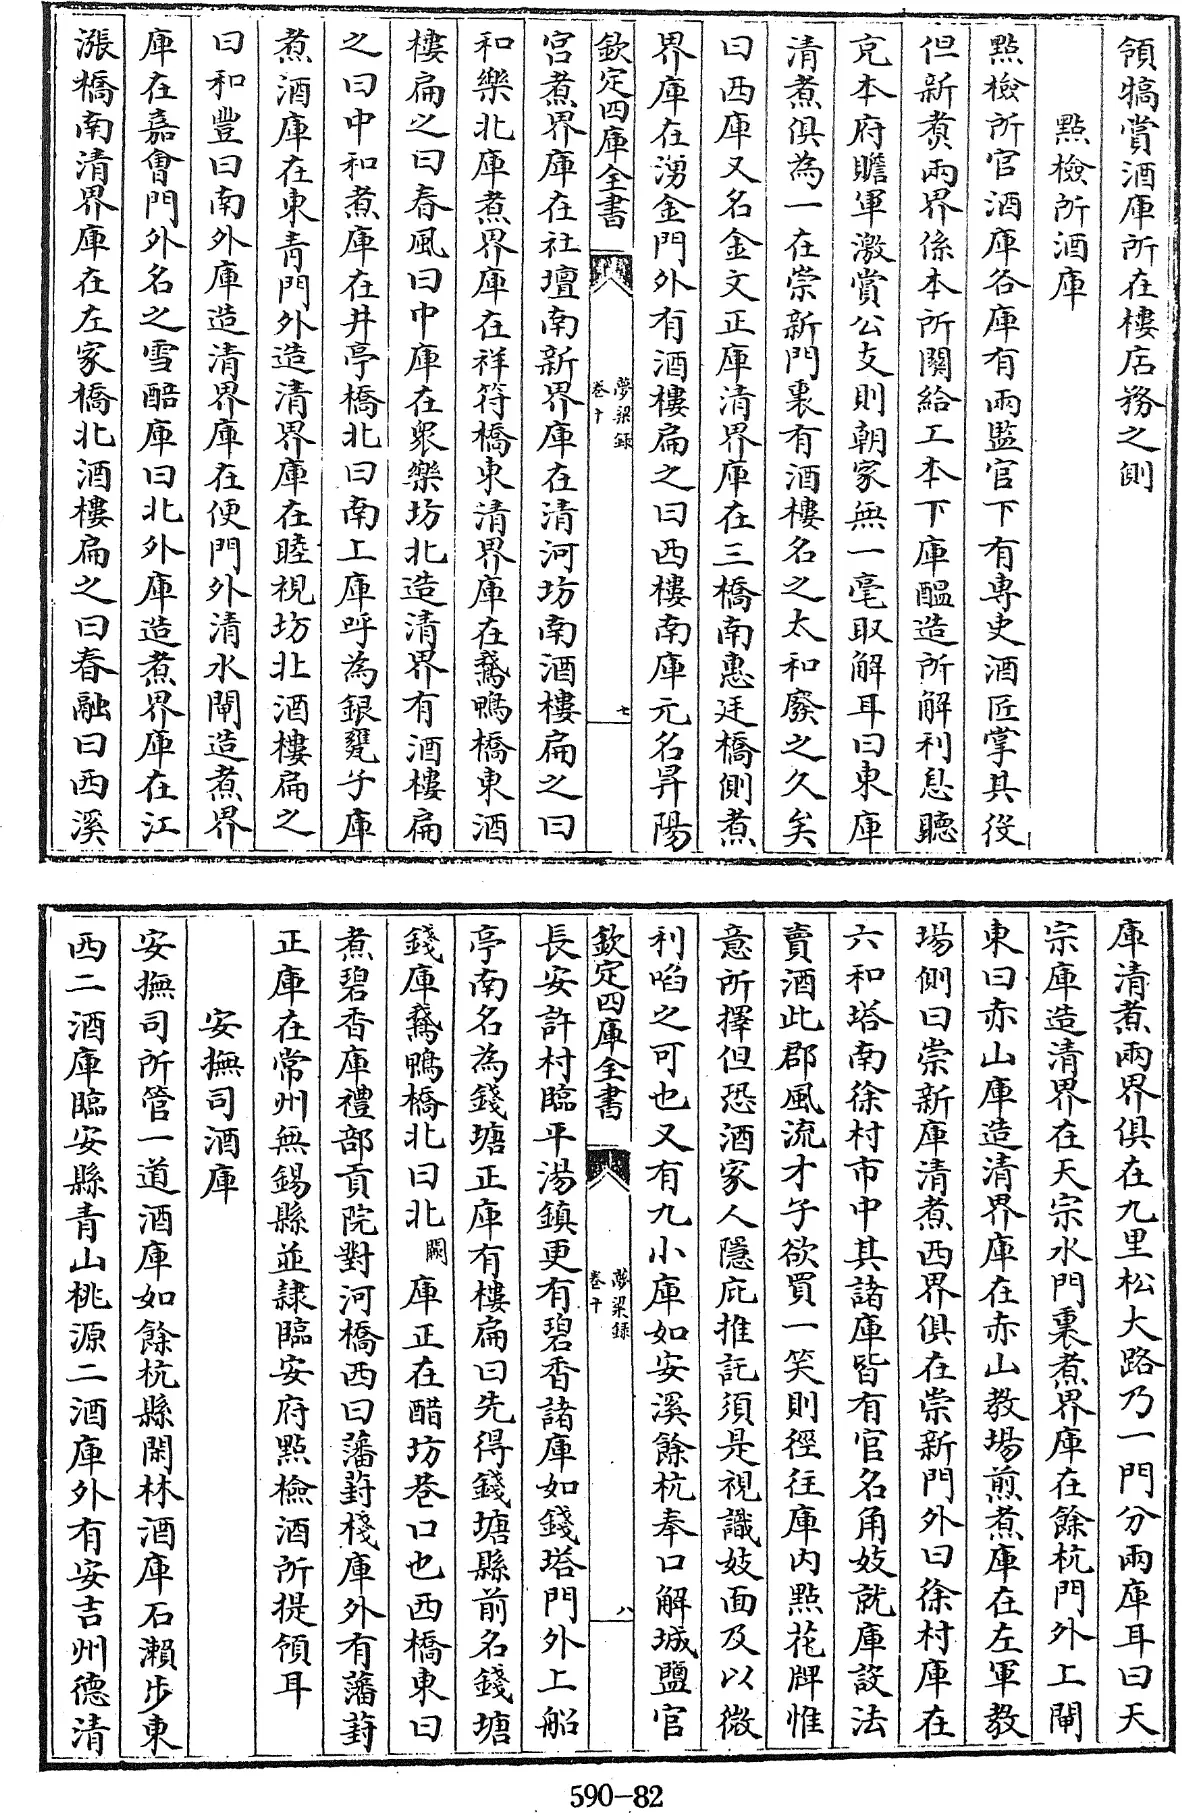 領犒賞酒庫所在樓店務之側
點檢所酒庫
點檢所官酒庫各庫有兩監官下有專吏酒匠掌其役
但新煑兩界係本所關給工本下庫醖造所解利息聽
克本府贍軍激賞公支則朝家無一毫取解耳曰東庫
清煮俱為一在崇新門裏有酒樓名之太和廢之久矣
曰西庫又名金文正庫清界庫在三橋南惠廷橋側煮
界庫在湧金門外有酒樓扁之曰西樓南庫元名昇陽
欽定四庫全書
夢粱録
卷十
七
宫煮界庫在社壇南新界庫在清河坊南酒樓扁之曰
和樂北庫煮界庫在祥符橋東清界庫在鵞鴨橋東酒
樓扁之曰春風曰中庫在衆樂坊北造清界有酒樓扁
之曰中和煮庫在井亭橋北曰南上庫呼為銀甕子庫
煮酒庫在東青門外造清界庫在睦視坊北酒樓扁之
曰和豐曰南外庫造清界庫在便門外清水閘造煮界
庫在嘉會門外名之雪醅庫曰北外庫造煮界庫在江
漲橋南清界庫在左家橋北酒樓扁之曰春融曰西溪
庫清煮兩界俱在九里松大路乃一門分兩庫耳曰天
宗庫造清界在天宗水門裏煮界庫在餘杭門外上閘
東曰赤山庫造清界庫在赤山教場煎煮庫在左軍教
場側曰崇新庫清煮西界俱在崇新門外曰徐村庫在
六和塔南徐村市中其諸庫皆有官名角妓就庫設法
賣酒此郡風流才子欲買一笑則徑往庫内點花牌惟
意所擇但恐酒家人隱庇推託須是視識妓面及以微
利啗之可也又有九小庫如安溪餘杭奉口解城鹽官
欽定四庫全書
夢粱録
卷十
八
長安許村臨平湯鎮更有碧香諸庫如錢塔門外上船
亭南名為錢塘正庫有樓扁曰先得錢塘縣前名錢塘
錢庫鵞鴨橋北曰北闕庫正在醋坊巷口也西橋東曰
煮碧香庫禮部貢院對河橋西曰藩葑棧庫外有藩葑
正庫在常州無錫縣並隸臨安府點檢酒所提領耳
安撫司酒庫
安撫司所管一道酒庫如餘杭縣閑林酒庫石瀨步東
西二酒庫臨安縣青山桃源二酒庫外有安吉州德清
590-82